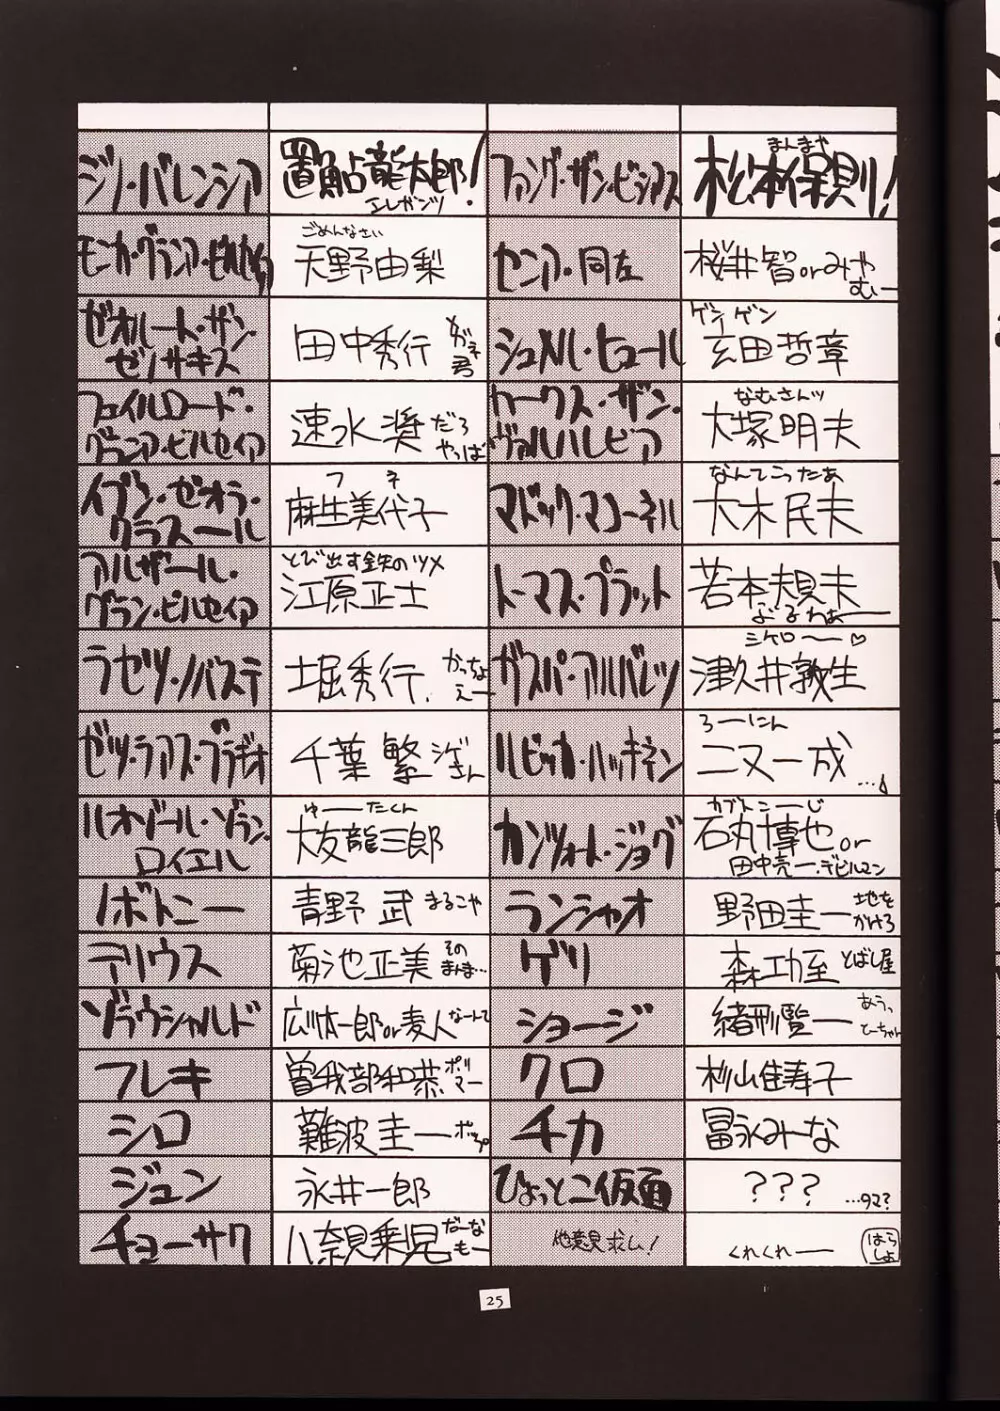 ジノ・バレンシア
置鮎龍太郎!
エレガンツ
ファング・ザン・ビシアス
まんまや
松本保典!
モニカ・グランア・ビルセイア
ごめんなさい
天野由梨
セニア・同左
桜井智orみや
むー
ゼオルート・ザン・
ゼノサキス
田中秀行
メガネ
君
シュメル・ヒュール
ゲンゲン
玄田哲章
フェイルロード・
グランア・ビルセイア
速水奨だろ
やっぱ
カークス・ザン・
ヴァルハレビア
なむさんッ
大塚明夫
イブン・ゼオラ・
クラスール
フネ
麻生美代子
マドック・マコーネル
なんてこったぁ
大木民夫
アルザール・
グラン・ビルセイア
とび出す鉄のツメ
江原正士
トーマス・プラット
若本規夫
ぶるわぁー
ラセツ・ノバステ
堀秀行
かっちょ
えー
ガスパ・アルバレツ
シケロー♡
津久井教生
ゼツ・ラアス・ブラギオ
千葉繁 シゲさん
ルビッカ・ハッキネン
ろーにん
二又一成
ハオゾール・ゾラン・
ロイエル
ゆーたくん
大友龍三郎
カンツォート・ジョグ
カブトこーじ
石丸博也or
田中亮一・デビルマン
ノボトニー
青野 武 まるこや
ランシャオ
野田圭一 地を
かけろ
テリウス
菊池正美 その
まんま…
ゲリ
森功至 とばし屋
ゾラウシャルド
広中雅一郎or麦人 なーんて
ショージ
緒方賢一 あうっ
とーちゃん
フレキ
曽我部和恭 ボボ
マー
クロ
杉山佳寿子
シロ
難波圭一 ポップ
チカ
冨永みーな
ジュン
永井一郎
ひょっとこ仮面
???
…タマ?
チョーサク
八奈見乗児 だーな
もー
他意見求ム!
くれくれー
はら
しょ
25